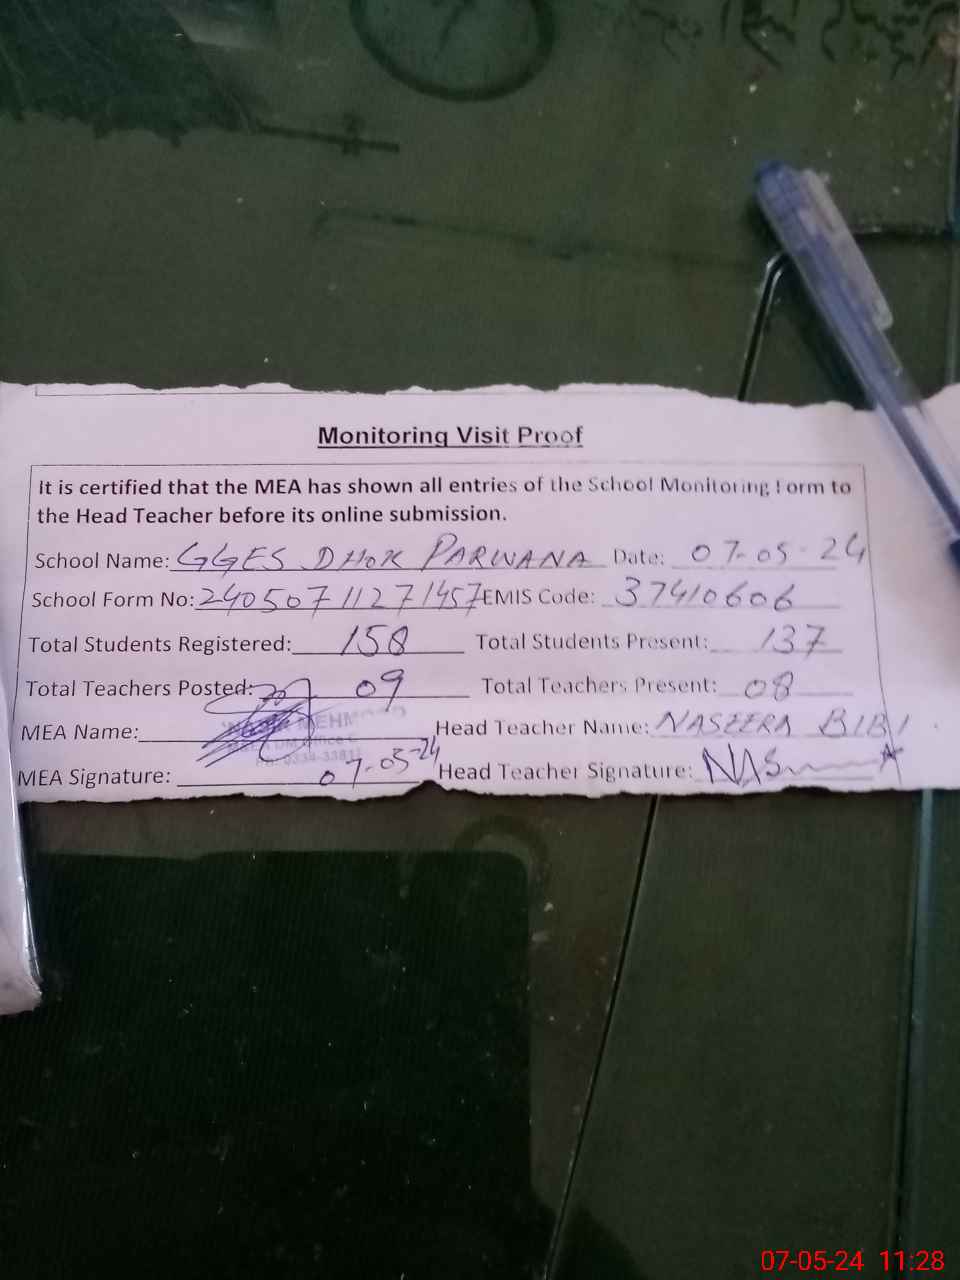 Monitoring Visit Proof
It is certified that the MEA has shown all entries of the School Monitoring Form to
the Head Teacher before its online submission.
School Name: GGES DHOK PARWANA Date: 07-05-24
School Form No: 24050711271457 EMIS Code: 37410606
Total Students Registered: 158 Total Students Present: 137
Total Teachers Posted: 09 Total Teachers Present: 08
MEA Name: MEHMOOD Head Teacher Name: NASEERA BIBI
MEA Signature: 07-05-24 Head Teacher Signature: NAS
07-05-24 11:28